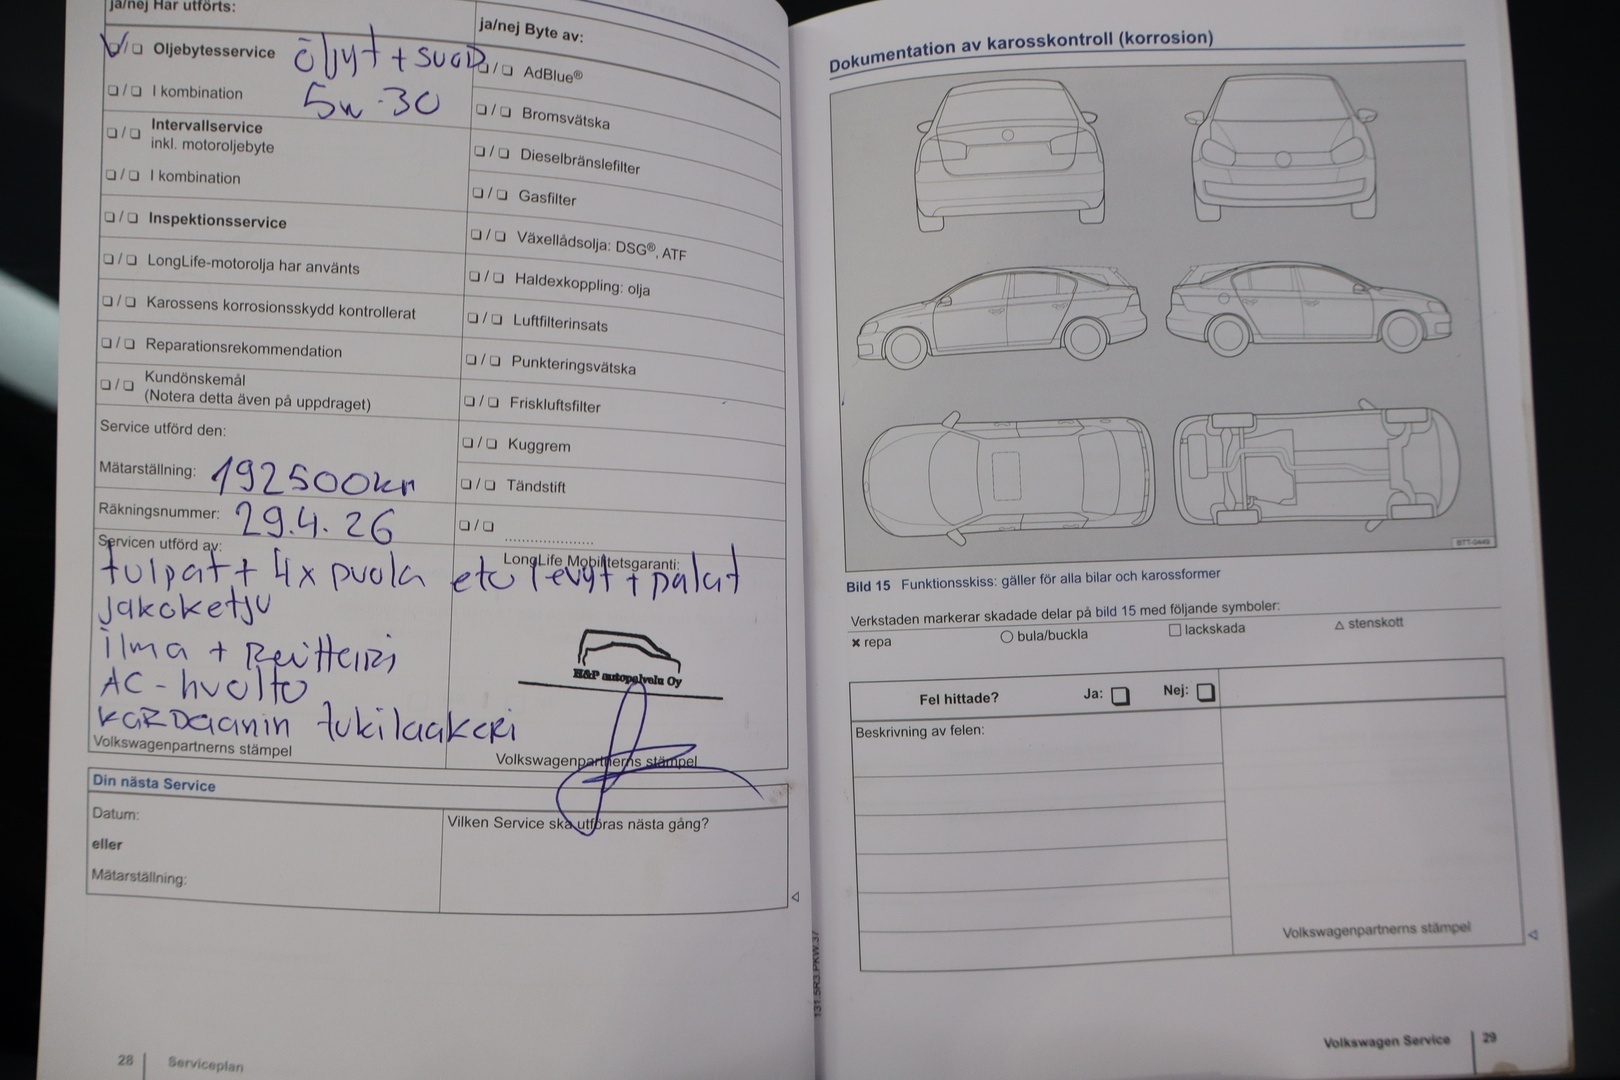 ja/nej Har utförts:
☑/❏ Oljebytesservice öljyt + suoD
❏/❏ I kombination 5w-30
❏/❏ Intervallservice
inkl. motoroljebyte
❏/❏ I kombination
❏/❏ Inspektionsservice
❏/❏ LongLife-motorolja har använts
❏/❏ Karossens korrosionsskydd kontrollerat
❏/❏ Reparationsrekommendation
❏/❏ Kundönskemål
(Notera detta även på uppdraget)
Service utförd den:
Mätarställning: 192500km
Räkningsnummer: 29.4.26
Servicen utförd av:
tulpat + 4x puola
jakoketju
ilma + Reitteri
AC-huolto
karDaanin tukilaakeri
Volkswagenpartnerns stämpel
ja/nej Byte av:
❏/❏ AdBlue®
❏/❏ Bromsvätska
❏/❏ Dieselbränslefilter
❏/❏ Gasfilter
❏/❏ Växellådsolja: DSG®, ATF
❏/❏ Haldexkoppling: olja
❏/❏ Luftfilterinsats
❏/❏ Punkteringsvätska
❏/❏ Friskluftsfilter
❏/❏ Kuggrem
❏/❏ Tändstift
❏/❏ .....................
LongLife Mobilitetsgaranti:
etu levyt + palat
H&P autopalvelu Oy
Volkswagenpartnerns stämpel
Din nästa Service
Datum:
eller
Mätarställning:
Vilken Service ska utföras nästa gång?
28 Serviceplan
131.5R3.PKW.37
Dokumentation av karosskontroll (korrosion)
BTT-0449
Bild 15 Funktionsskiss: gäller för alla bilar och karossformer
Verkstaden markerar skadade delar på bild 15 med följande symboler:
✖ repa ○ bula/buckla □ lackskada △ stenskott
Fel hittade? Ja: ❏ Nej: ❏
Beskrivning av felen:
Volkswagenpartnerns stämpel
Volkswagen Service 29